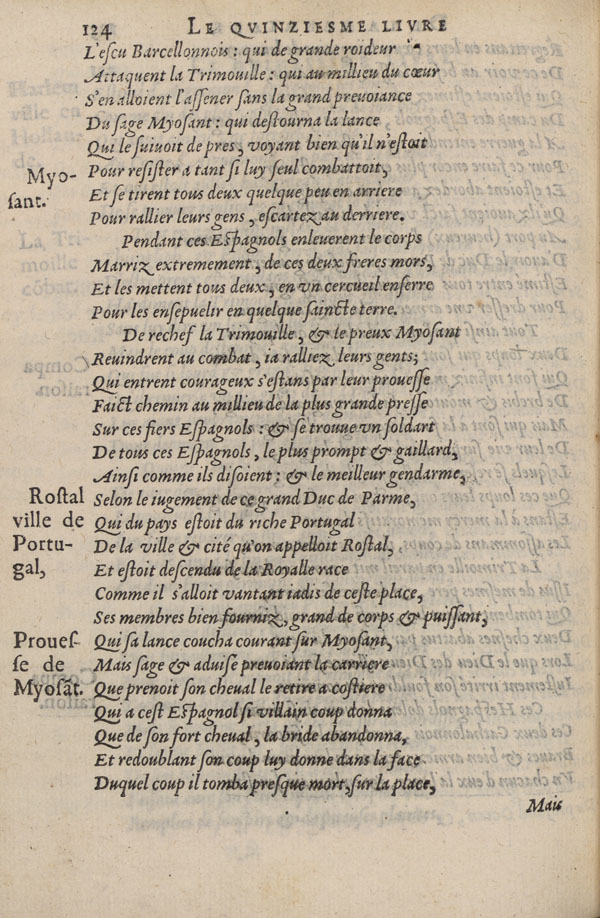 124 LE QVINZIESME LIVRE
L'escu Barcellonnois : qui de grande roideur
Attaquent la Trimouille : qui au millieu du cœur
S'en alloient l'assener sans la grand prevoiance
Du sage Myosant : qui destourna la lance
Qui le suivoit de pres, voyant bien qu'il n'estoit
Myo-
sant.
Pour resister a tant si luy seul combattoit,
Et se tirent tous deux quelque peu en arriere
Pour rallier leurs gens, escartez au derriere.
Pendant ces Espagnols enleuerent le corps
Marriz extremement, de ces deux freres mors,
Et les mettent tous deux, en vn cercueil enserre
Pour les ensepuelir en quelque saincte terre.
De rechef la Trimouille, & le preux Myosant
Reuindrent au combat, ia ralliez leurs gents;
Qui entrent courageux s'estans par leur prouesse
Faict chemin au millieu de la plus grande presse
Sur ces fiers Espagnols : & se trouue vn soldart
De tous ces Espagnols, le plus prompt & gaillard,
Ainsi comme ils disoient : & le meilleur gendarme,
Rostal
ville de
Portu-
gal,
Selon le iugement de ce grand Duc de Parme,
Qui du pays estoit du riche Portugal
De la ville & cité qu'on appelloit Rostal,
Et estoit descendu de la Royalle race
Comme il s'alloit vantant iadis de ceste place,
Ses membres bien fourniz, grand de corps & puissant,
Proues-
se de
Myosãt.
Qui sa lance coucha courant sur Myosant,
Mais sage & aduise prevoiant la carriere
Que prenoit son cheval le retire a costiere
Qui a cest Espagnol si villain coup donna
Que de son fort cheval, la bride abandonna,
Et redoublant son coup luy donne dans la face
Duquel coup il tomba presque mort, sur la place,
Mais